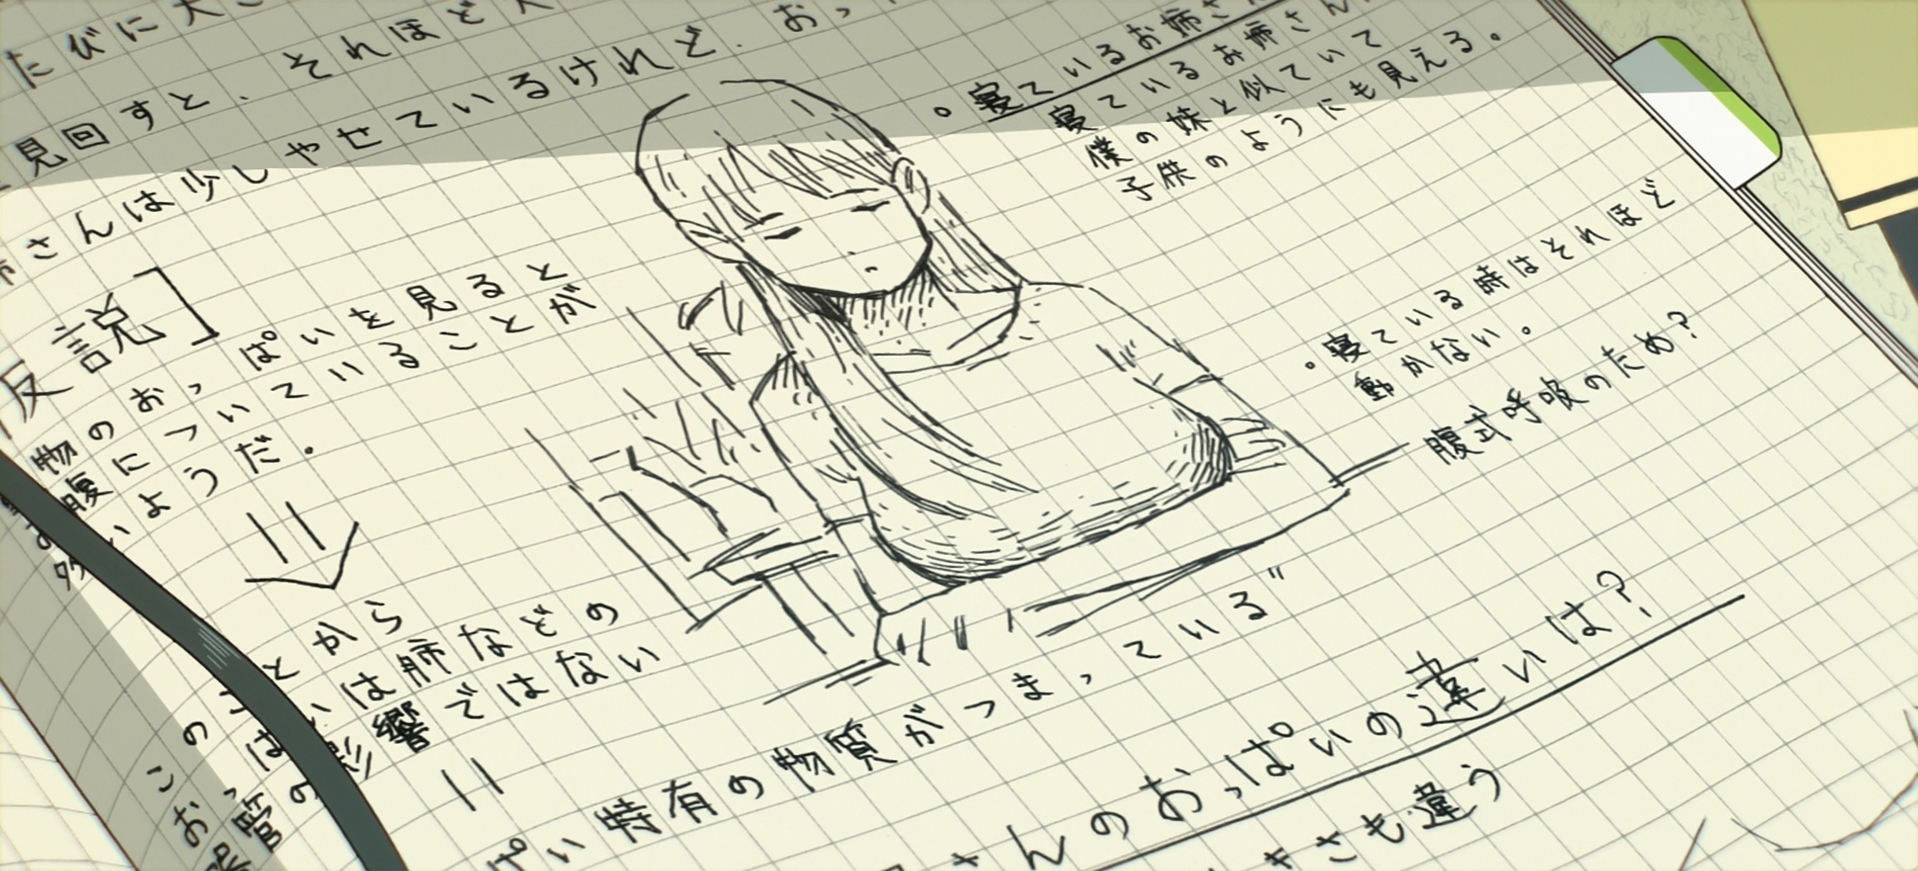 たびに大き
見回すと、それほど大
さんは少しやせているけれど、おっ
反説]
物のおっぱいを見ると
お腹についていることが
多いようだ。
このことから
おっぱいは肺などの
臓の影響ではない
ぱい特有の物質がつまっている"
。寝ているお姉さん
寝ているお姉さん
僕の妹と似ていて
子供のようにも見える。
。寝ている時はそれほど
動かない。
腹式呼吸のため?
さんのおっぱいの違いは?
きさも違う